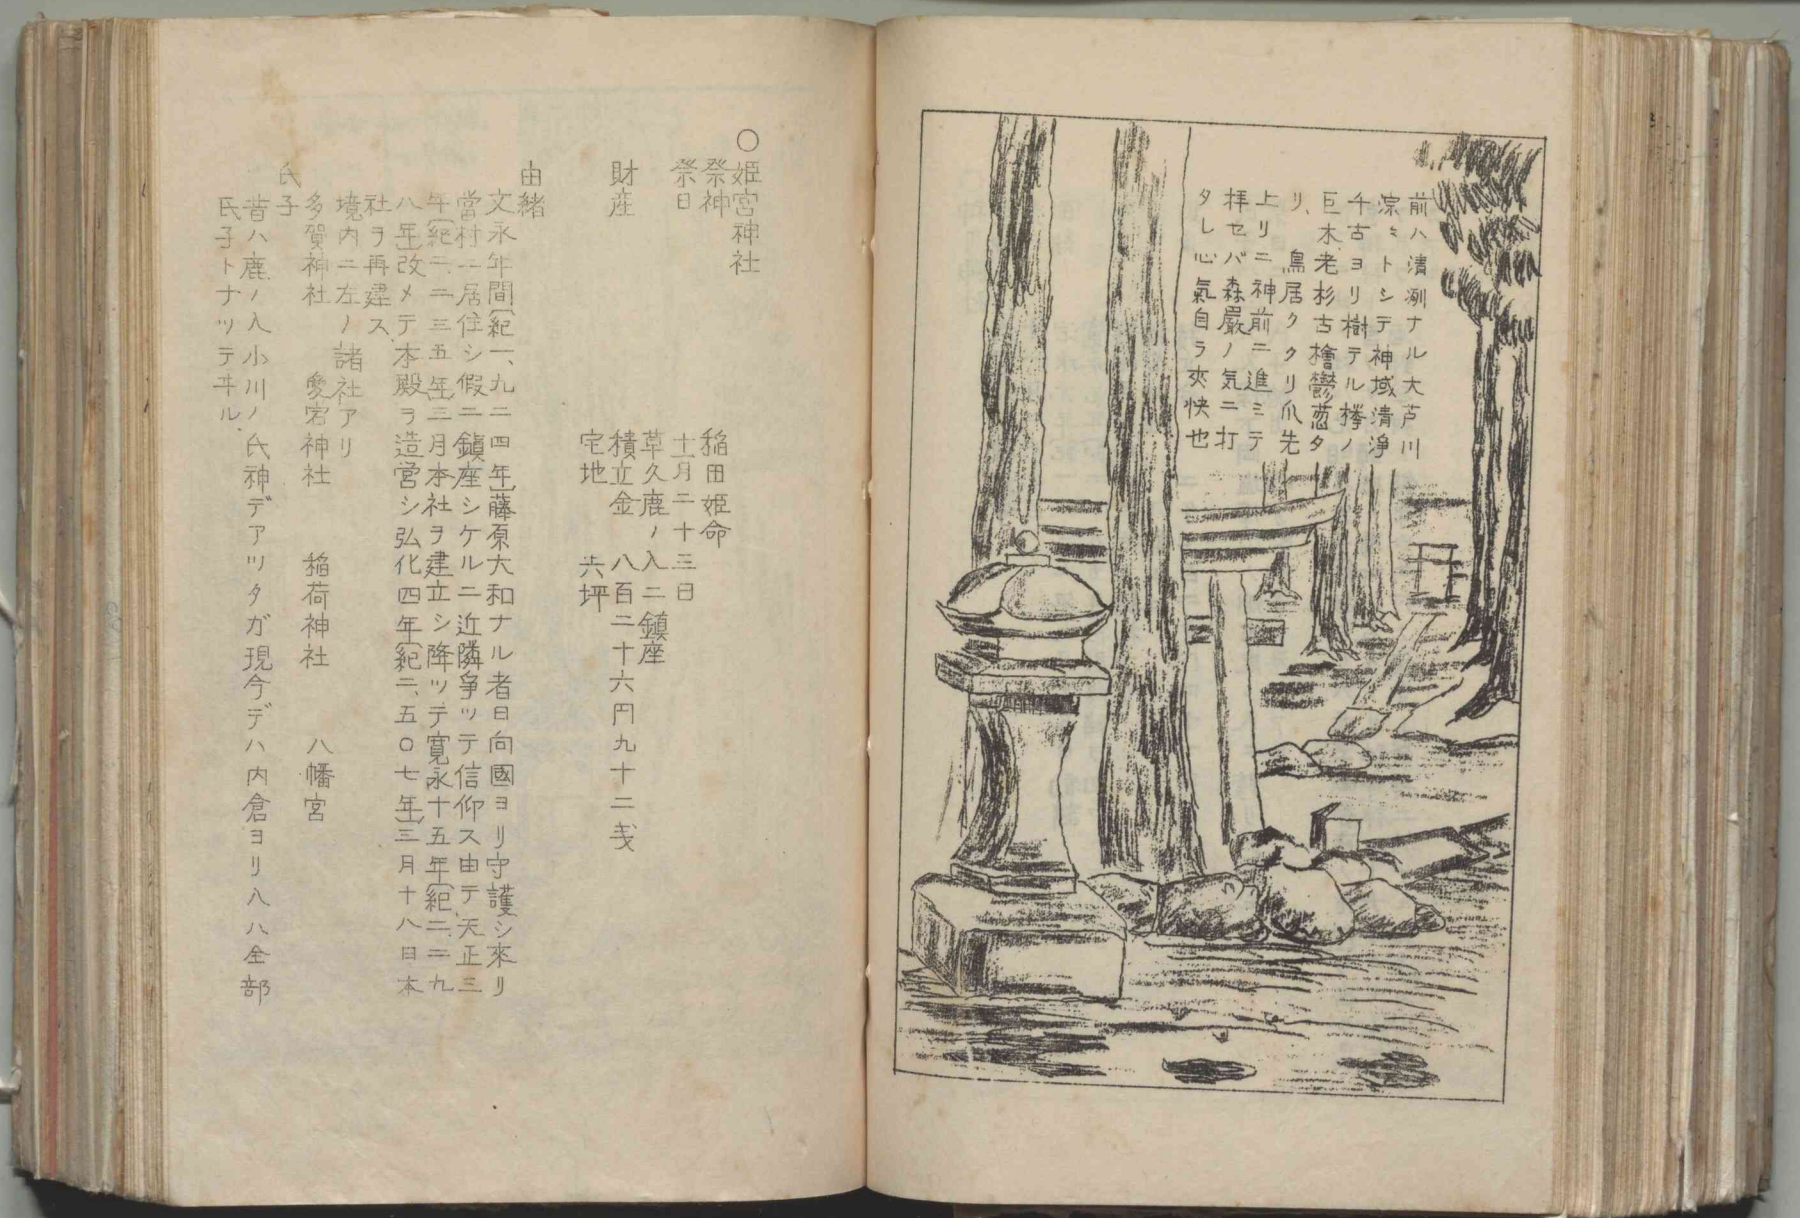 前ハ清冽ナル大芦川
淙々トシテ神域清浄
千古ヨリ樹テル欅ノ
巨木老杉古檜鬱蒼タ
リ、鳥居クグリ爪先
上リニ神前ニ進ミテ
拝セバ森嚴ノ気ニ打
タレ心氣自ラ爽快也
〇姫宮神社
祭神 稲田姫命
祭日 十一月二十三日
草久鹿ノ入ニ鎮座
財産 積立金 八百二十六円九十二戋
宅地 六坪
由緒
文永年間(紀一、九二四年)藤原大和ナル者日向國ヨリ守護シ來リ
當村ニ居住シ假ニ鎮座シケルニ近隣爭ッテ信仰ス由テ天正三
年(紀二二三五年)三月本社ヲ建立シ降ッテ寛永十五年(紀二二九
八年)改メテ本殿ヲ造営シ弘化四年(紀二、五〇七年)三月十八日本
社ヲ再建ス
境内ニ左ノ諸社アリ
多賀神社 愛宕神社 稲荷神社 八幡宮
氏子
昔ハ鹿ノ入小川ノ氏神デアツタガ現今デハ内倉ヨリ入ハ全部
氏子トナツテヰル.